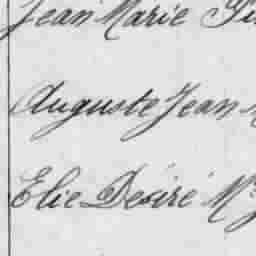 Jean Marie
Auguste Jean
Elie Désiré